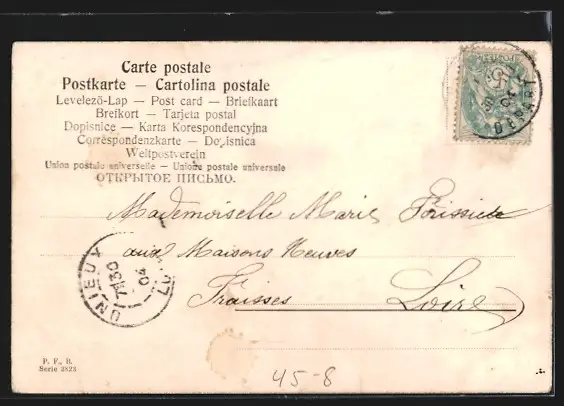 Carte postale
Postkarte — Cartolina postale
Levelező-Lap — Post card — Briefkaart
Brefkort — Tarjeta postal
Dopisnice — Karta Korespondencyjna
Correspondenzkarte — Dopisnica
Weltpostverein
Union postale universelle — Unione postale universale
ОТКРЫТОЕ ПИСЬМО.
5
DÉPART
Mademoiselle Marie
aux Maisons Neuves
Fraisses Loire
UNIEUX
7 30
04
P. F., B.
Serie 3823
45-8